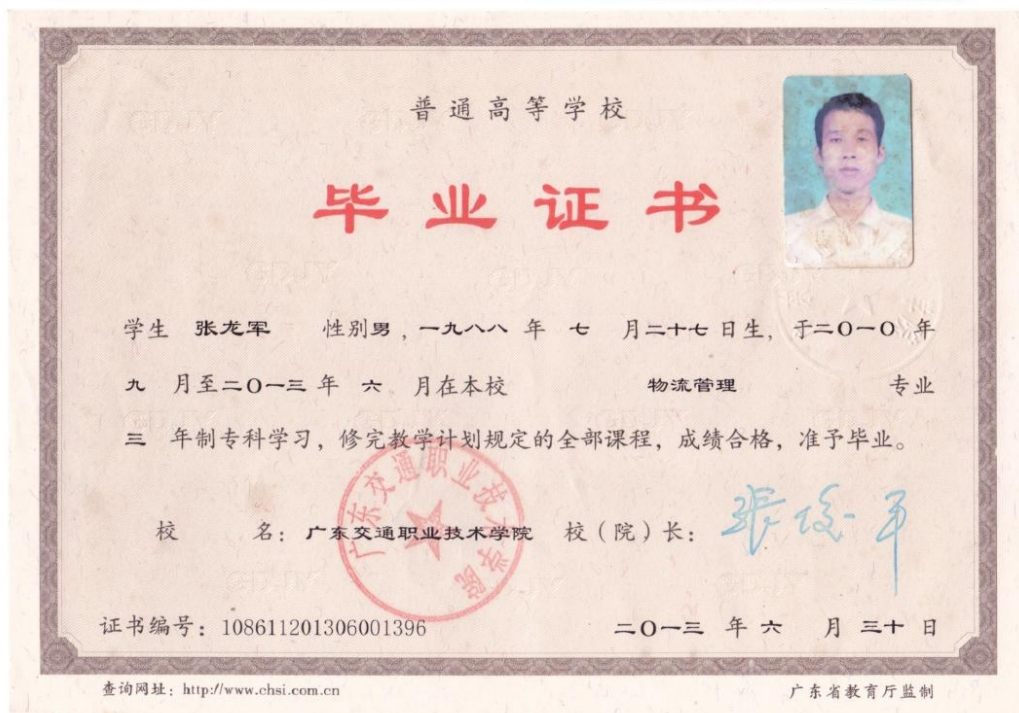 普通高等学校
毕业证书
学生 张龙军 性别男，一九八八 年 七 月二十七日生，于二〇一〇 年
九 月至二〇一三 年 六 月在本校 物流管理 专业
三 年制专科学习，修完教学计划规定的全部课程，成绩合格，准予毕业。
校 名：广东交通职业技术学院 校（院）长：
广东交通职业技术学院
证书编号：108611201306001396 二〇一三 年 六 月 三十 日
查询网址：http://www.chsi.com.cn 广东省教育厅监制